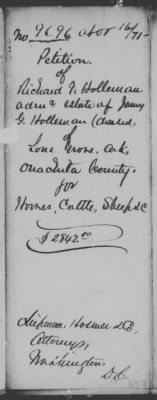 No. 9696 Nov 16/75
Petition
of
Richard T. Holleman
admr & estate of James
G. Holleman (deceased,
of
Lone Grove, Ark,
Ouachita County.
for
Horses, Cattle, Sheep &c
$2842.00
Hosmer & Co.
Attorneys
Washington
D.C.